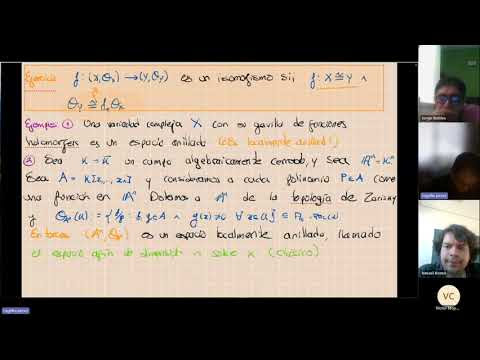 Ejercicio f: (X, O_X) → (Y, O_Y) es un isomorfismo sii, f: X ≅ Y ∧
O_Y ≅ f_* O_X
Ejemplos ① Una variedad compleja X con su gavilla de funciones
holomorfas es un espacio anillado (¡Es localmente anillado!)
② Sea K = K̄ un campo algebraicamente cerrado, y sea 𝔸ⁿ = Kⁿ
Sea A = K[z₁, ..., zₙ] y consideramos a cada polinomio P∈A como
una función en 𝔸ⁿ Dotamos a 𝔸ⁿ de la topología de Zariski
y
Entonces (𝔸ⁿ, O) es un espacio localmente anillado, llamado
el espacio afín de dimensión n sobre K (clásico)
VC